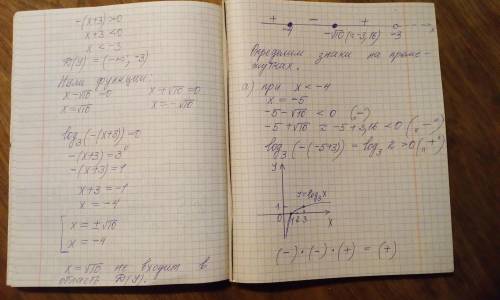 -(x+3)>0
x+3<0
x<-3
D(y) = (-∞; -3)
Нули функции:
x-√10=0 x+√10=0
x=√10 x=-√10
log₃(-(x+3))=0
-(x+3)=3⁰
-(x+3)=1
x+3=-1
x=-4
x=±√10
x=-4
x=√10 не входит в
область D(y).
+ - +
-4 -√10 (≈-3,16) -3 x
Определим знаки на проме-
жутках.
а) при x<-4
x=-5
-5-√10<0 (-)
-5+√10 ≈ -5+3,16<0 („-")
log₃(-(-5+3)) = log₃2>0 („+")
y
y=log₃x
1
0 1 2 3 x
(-)·(-)·(+) = (+)